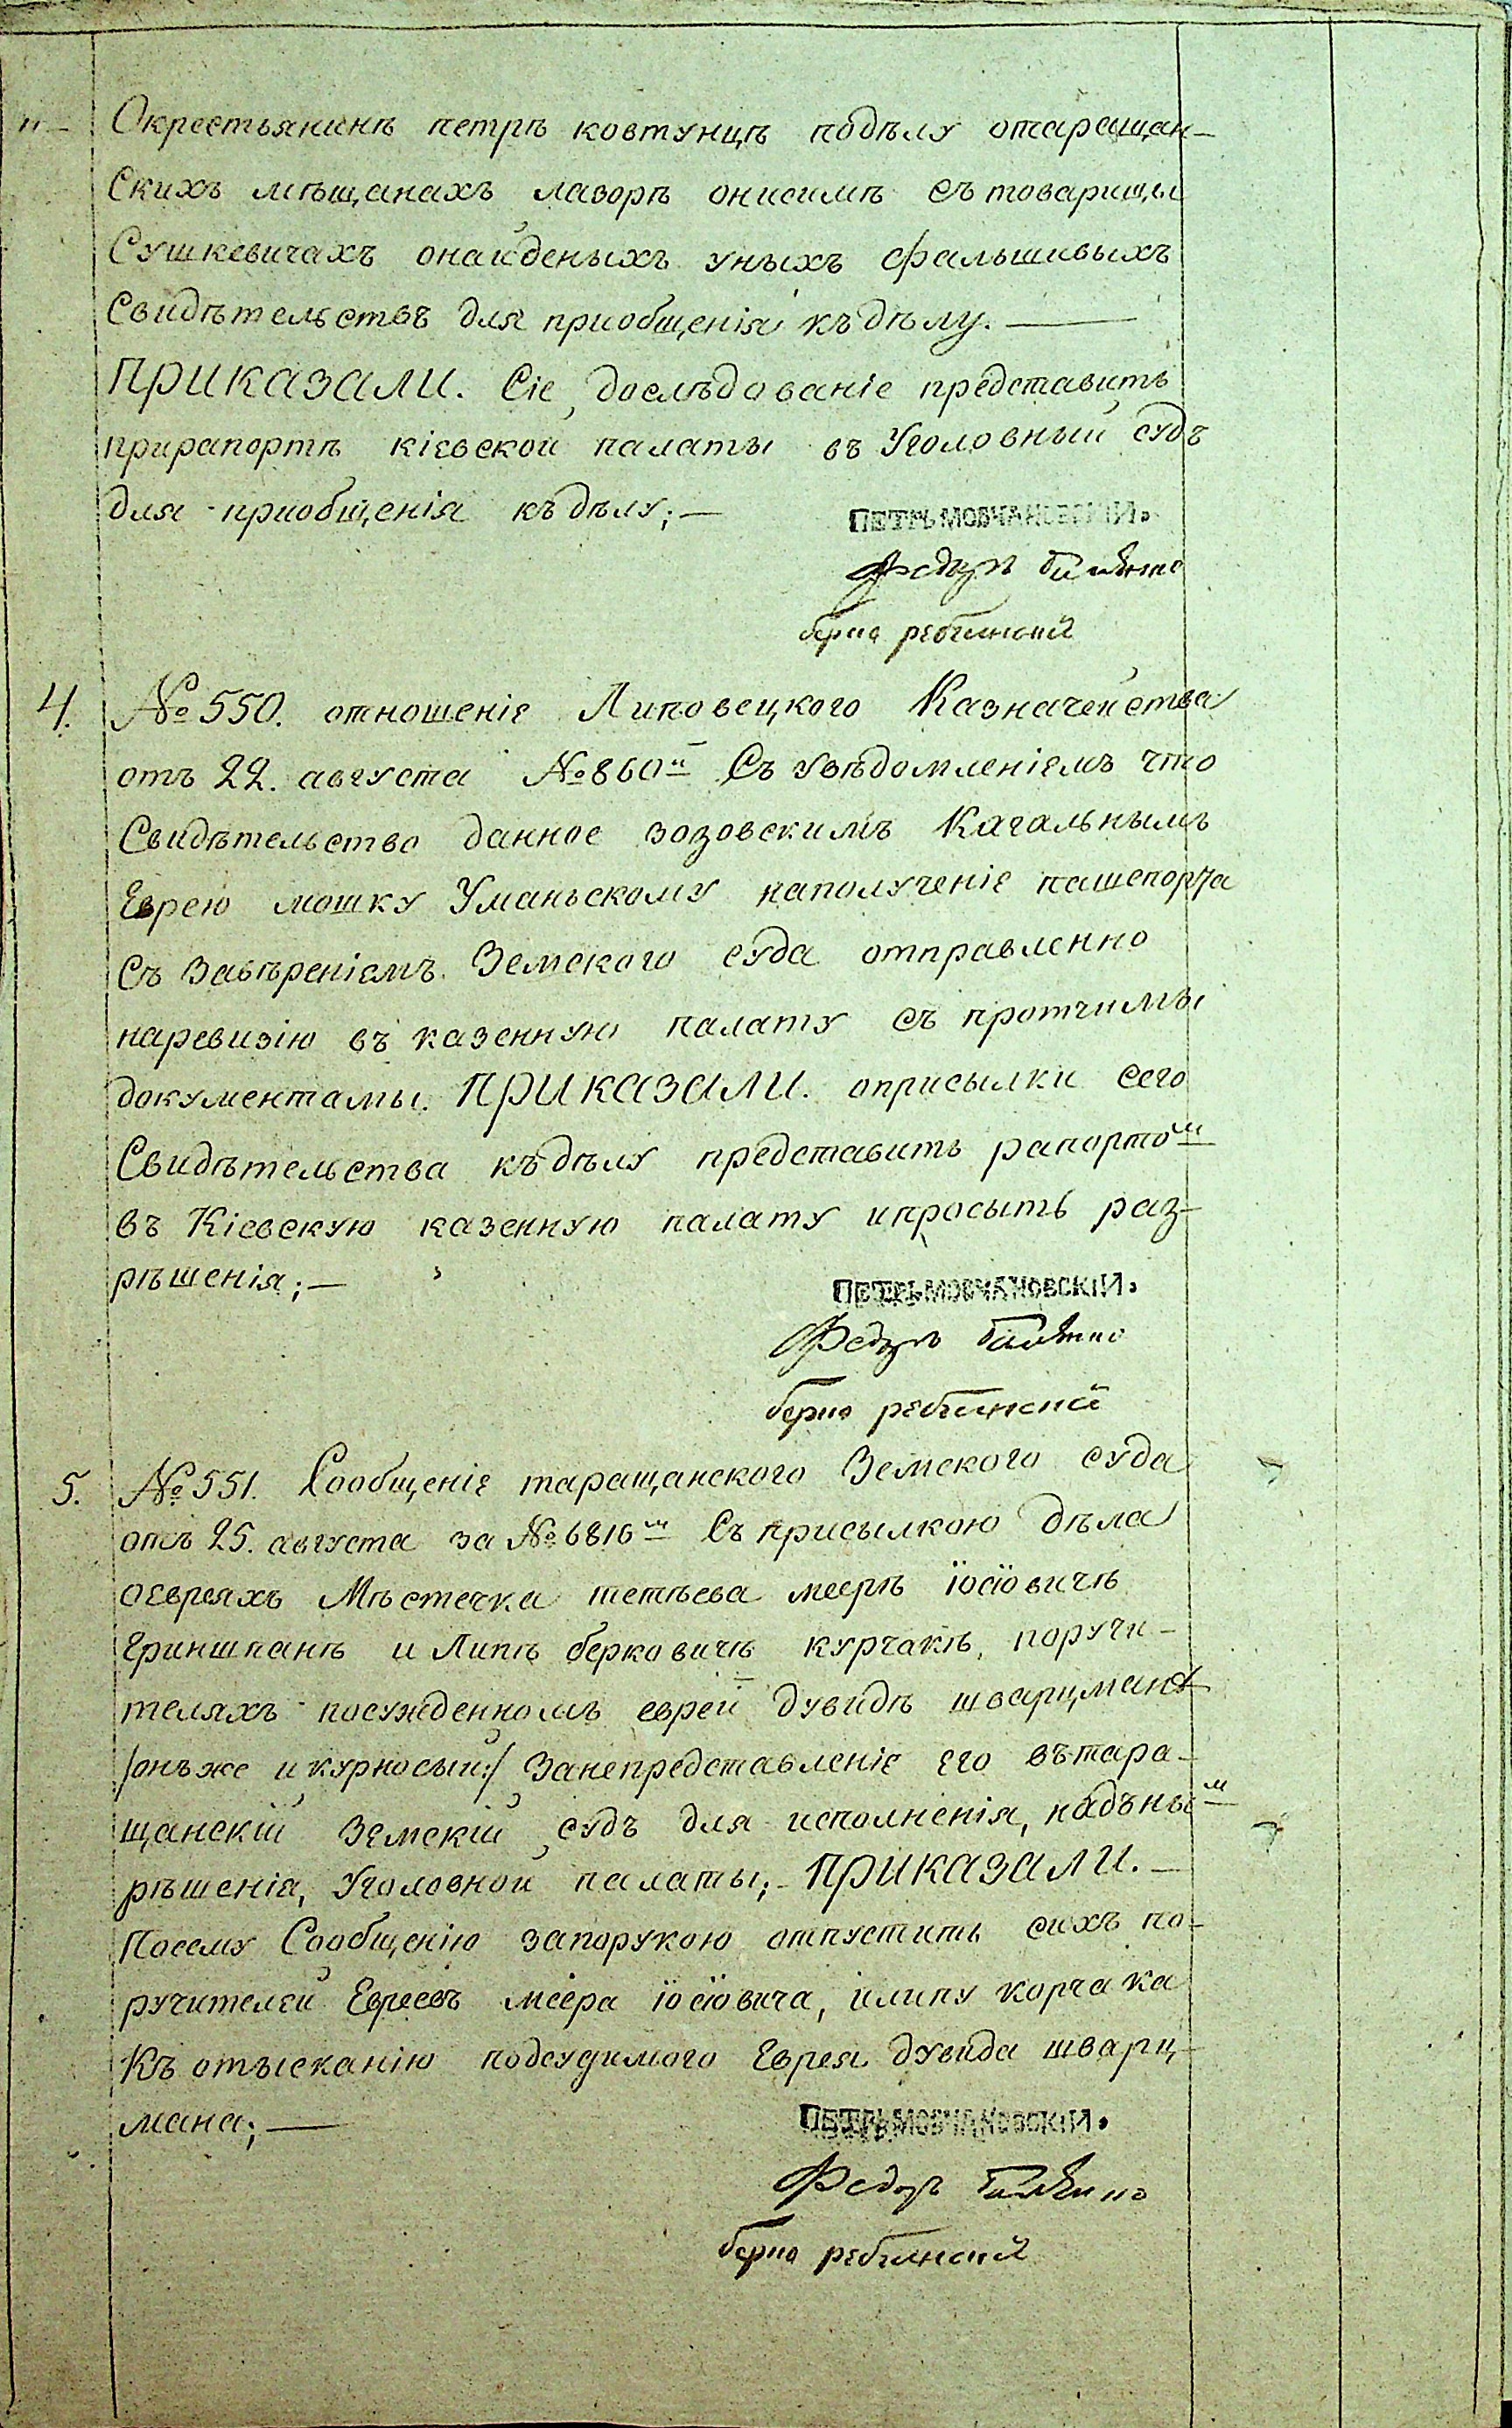 Окрестьянинѣ петрѣ ковтунцѣ подѣлу отаращан-
Скихъ мѣщанахъ лазорѣ онисимѣ съ товарищы
Сушкевичахъ онайденыхъ уныхъ фальшивыхъ
Свидѣтельствъ для приобщенія къдѣлу. —
ПРИКАЗАЛИ. Сіе дослѣдованіе представить
прирапортѣ кіевской палаты въ Уголовный судъ
для приобщенія къдѣлу; —
ПЕТРЪ МОВЧАНОВСКІЙ.
Федоръ
4. № 550. отношеніе Липовецкого Казначейства
отъ 22. августа № 860 Съ увѣдомленіемъ что
Свидѣтельство данное зозовскимъ Кагальнымъ
Еврею мошку Уманьскому наполученіе пашепорта
Съ Завѣреніемъ Земского суда отправленно
наревизію въ казенную палату съ протчимы
документамы. ПРИКАЗАЛИ. оприсылки сего
Свидѣтельства къдѣлу представить рапортом
въ Кіевскую казенную палату ипросыть раз-
рѣшенія; —
ПЕТРЪ МОВЧАНОВСКІЙ.
Федоръ
5. № 551. Сообщеніе таращанского Земского суда
отъ 25. августа за № 6816м Съ присылкою дѣла
оевреяхъ Мѣстечка тетѣева меерѣ їосїовичѣ
Гриншпанѣ и Липѣ берковичѣ курчакѣ, поручи-
теляхъ посужденномъ еврей дувидѣ шварцманѣ
/онъже и курносый:/ Занепредставленіе его вътара-
щанскій Земскій судъ для исполненія, надъным
рѣшенія, Уголовной палаты; - ПРИКАЗАЛИ. —
Посему Сообщенію запорукою отпустить сихъ по-
ручителей Евреевъ меера їосїовича, илипу корчака
Къ отысканію подсудимого Еврея дувида шварц-
мана; —
ПЕТРЪ МОВЧАНОВСКІЙ.
Федоръ